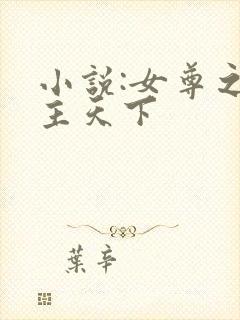 小說:女尊之
主天下
葉辛